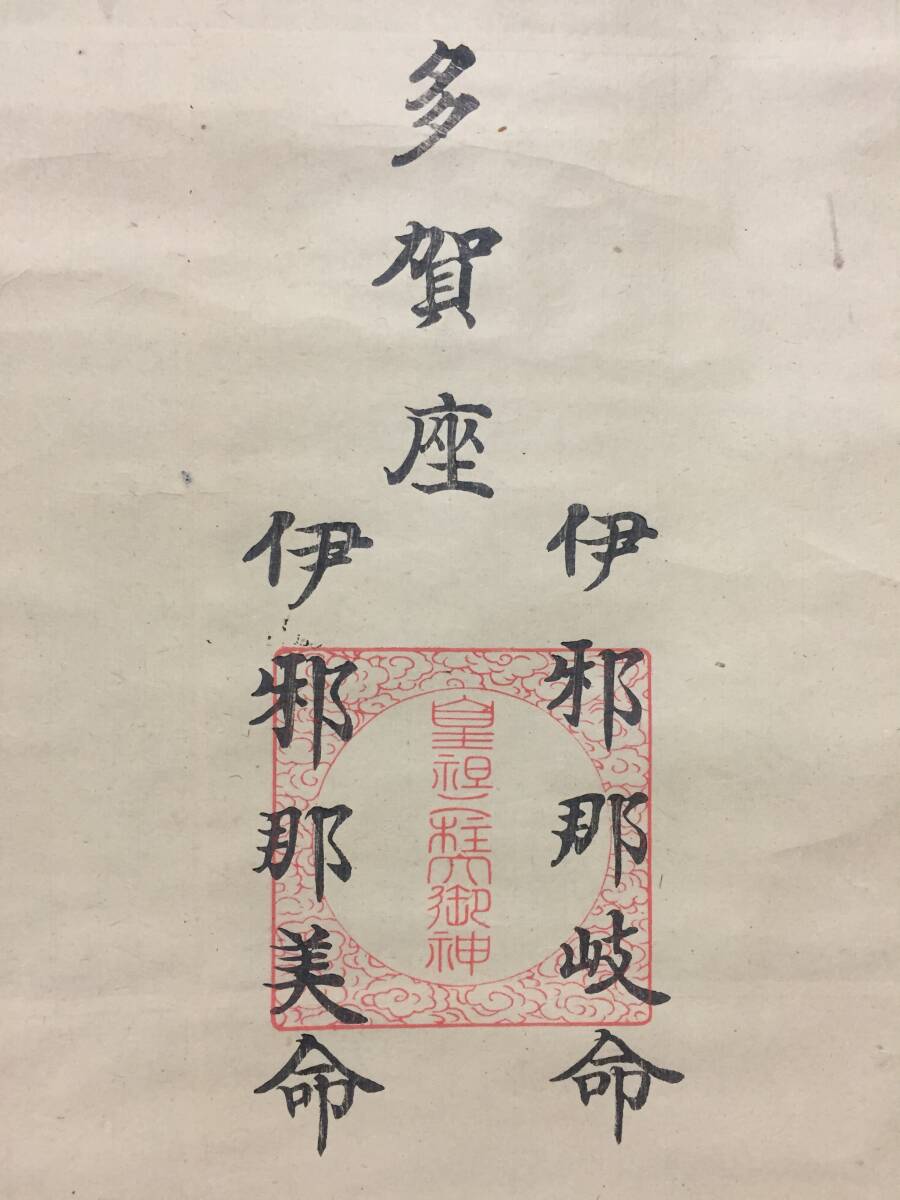 多賀座
伊邪那岐命
伊邪那美命
皇祖二柱大御神